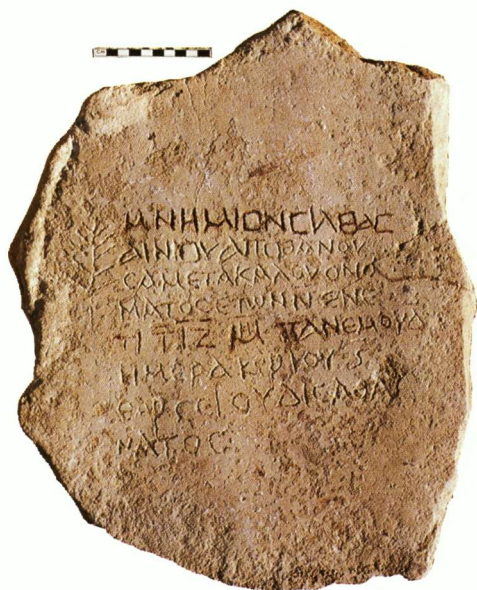 ΜΝΗΜΙΟΝ CΙΛΘΑC
ΑΙΝΙΟΥ ΑΠΟΘΑΝΟΥ
CΑ ΜΕΤΑ ΚΑΛΟΥ ΟΝΟ
ΜΑΤΟC ΕΤΩΝ Ν ΕΝ Ε
ΤΙ ΤΙΖ ΜΗ ΠΑΝΕΜΟΥ Δ
ΗΜΕΡΑ ΚΥΡΙΟΥ
ΘΑΡCΕΙ ΟΥΔΙC ΑΘΑ
ΝΑΤΟC